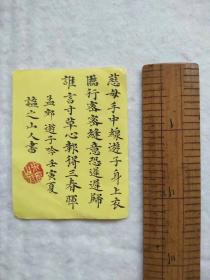 慈母手中線遊子身上衣
臨行密密縫意恐遲遲歸
誰言寸草心報得三春暉
孟郊 遊子吟 壬寅夏
之山人書